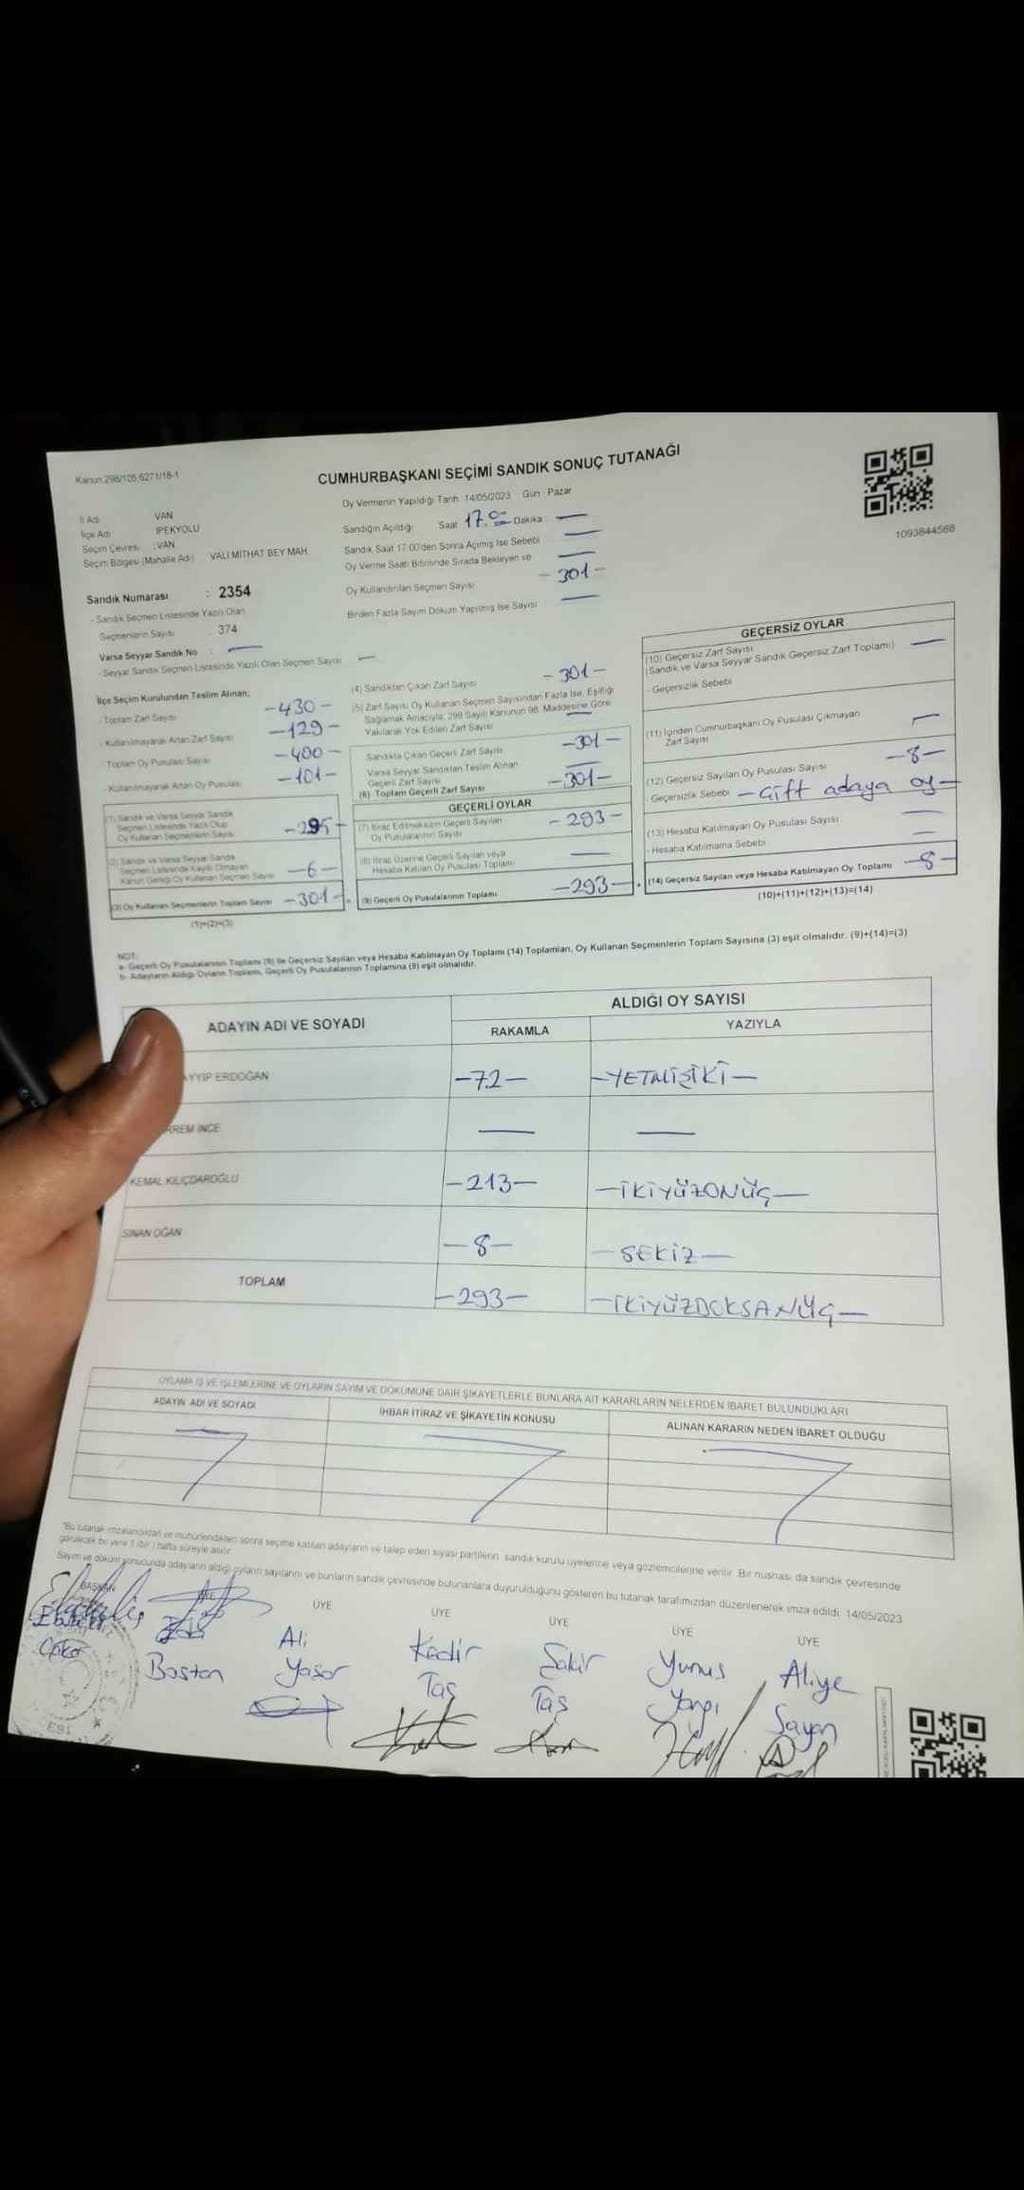 Kanun:298/105;6271/18-1
CUMHURBAŞKANI SEÇİMİ SANDIK SONUÇ TUTANAĞI
Oy Vermenin Yapıldığı Tarih 14/05/2023 Gün Pazar
1093844568
İl Adı VAN
İlçe Adı İPEKYOLU
Seçim Çevresi :VAN
Seçim Bölgesi (Mahalle Adı) VALİ MİTHAT BEY MAH.
Sandık Numarası : 2354
- Sandık Seçmen Listesinde Yazılı Olan
Seçmenlerin Sayısı : 374
Varsa Seyyar Sandık No :
- Seyyar Sandık Seçmen Listesinde Yazılı Olan Seçmen Sayısı
Sandığın Açıldığı Saat 17.00 Dakika
Sandık Saat 17.00'den Sonra Açılmış İse Sebebi
Oy Verme Saati Bitiminde Sırada Bekleyen ve
Oy Kullandırılan Seçmen Sayısı -301-
Birden Fazla Sayım Döküm Yapılmış İse Sayısı
İlçe Seçim Kurulundan Teslim Alınan;
- Toplam Zarf Sayısı -430-
- Kullanılmayarak Artan Zarf Sayısı -129-
- Toplam Oy Pusulası Sayısı -400-
- Kullanılmayarak Artan Oy Pusulası -101-
(1) Sandık ve Varsa Seyyar Sandık
Seçmen Listesinde Yazılı Olup
Oy Kullanan Seçmenlerin Sayısı -295-
(2) Sandık ve Varsa Seyyar Sandık
Seçmen Listesinde Kayıtlı Olmayan
Kanun Gereği Oy Kullanan Seçmen Sayısı -6-
(3) Oy Kullanan Seçmenlerin Toplam Sayısı -301-
(1)+(2)=(3)
(4) Sandıktan Çıkan Zarf Sayısı -301-
(5) Zarf Sayısı Oy Kullanan Seçmen Sayısından Fazla İse, Eşitliği
Sağlamak Amacıyla, 298 Sayılı Kanunun 98. Maddesine Göre
Yakılarak Yok Edilen Zarf Sayısı
Sandıkta Çıkan Geçerli Zarf Sayısı -301-
Varsa Seyyar Sandıktan Teslim Alınan
Geçerli Zarf Sayısı
(6) Toplam Geçerli Zarf Sayısı -301-
GEÇERLİ OYLAR
(7) İtiraz Edilmeksizin Geçerli Sayılan
Oy Pusulalarının Sayısı -293-
(8) İtiraz Üzerine Geçerli Sayılan veya
Hesaba Katılan Oy Pusulası Toplamı
(9) Geçerli Oy Pusulalarının Toplamı -293-
GEÇERSİZ OYLAR
(10) Geçersiz Zarf Sayısı
(Sandık ve Varsa Seyyar Sandık Geçersiz Zarf Toplamı)
- Geçersizlik Sebebi
(11) İçinden Cumhurbaşkanı Oy Pusulası Çıkmayan
Zarf Sayısı
(12) Geçersiz Sayılan Oy Pusulası Sayısı -8-
- Geçersizlik Sebebi -Çift adaya oy-
(13) Hesaba Katılmayan Oy Pusulası Sayısı
- Hesaba Katılmama Sebebi
(14) Geçersiz Sayılan veya Hesaba Katılmayan Oy Toplamı -8-
(10)+(11)+(12)+(13)=(14)
NOT:
a- Geçerli Oy Pusulalarının Toplamı (9) ile Geçersiz Sayılan veya Hesaba Katılmayan Oy Toplamı (14) Toplamları, Oy Kullanan Seçmenlerin Toplam Sayısına (3) eşit olmalıdır. (9)+(14)=(3)
b- Adayların Aldığı Oyların Toplamı, Geçerli Oy Pusulalarının Toplamına (9) eşit olmalıdır.
ADAYIN ADI VE SOYADI
ALDIĞI OY SAYISI
RAKAMLA YAZIYLA
AYYİP ERDOĞAN -72- -YETMİŞİKİ-
RREM İNCE
KEMAL KILIÇDAROĞLU -213- -İKİYÜZONÜÇ-
SİNAN OĞAN -8- -SEKİZ-
TOPLAM -293- -İKİYÜZDOKSANÜÇ-
OYLAMA İŞ VE İŞLEMLERİNE VE OYLARIN SAYIM VE DÖKÜMÜNE DAİR ŞİKAYETLERLE BUNLARA AİT KARARLARIN NELERDEN İBARET BULUNDUKLARI
ADAYIN ADI VE SOYADI İHBAR İTİRAZ VE ŞİKAYETİN KONUSU ALINAN KARARIN NEDEN İBARET OLDUĞU
*Bu tutanak imzalandıktan ve mühürlendikten sonra seçime katılan adayların ve talep eden siyasi partilerin sandık kurulu üyelerine veya gözlemcilerine verilir. Bir nüshası da sandık çevresinde
görülecek bir yere 1 (bir) hafta süreyle asılır.
Sayım ve döküm sonucunda adayların aldığı oyların sayılarını ve bunların sandık çevresinde bulunanlara duyurulduğunu gösteren bu tutanak tarafımızdan düzenlenerek imza edildi. 14/05/2023
BAŞKAN ÜYE ÜYE ÜYE ÜYE ÜYE
Ali Kadir Şakir Yunus Aliye
Bostan Yaşar Taş Taş Yargı Sayan